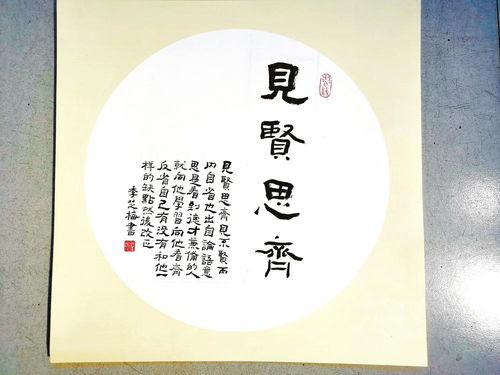 見賢思齊
見賢思齊見不賢而
內自省也出自論語意
思是看到德才兼備的人
就向他學習向他看齊
反省自己有没有和他一
樣的缺點然後改正
李芝梅書